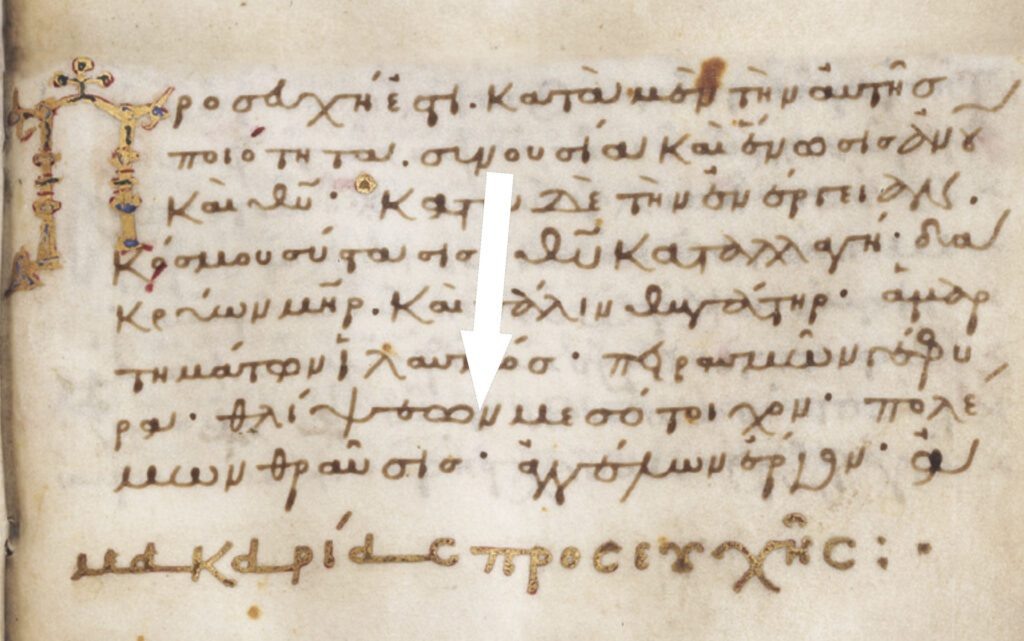 Προσευχή ἐστι. κατὰ μὲν τὴν αὐτῆς
ποιότητα. συνουσία καὶ ἕνωσις ἀν̅ου̅
καὶ θ̅υ̅· κατὰ δὲ τὴν ἐνέργειαν.
κόσμου σύστασις θ̅υ̅ καταλλαγή· δα
κρύων μ̅η̅ρ̅. καὶ πάλιν θυγάτηρ· ἁμαρ
τημάτων ἱλασμός· πειρασμῶν γέφυ
ρα· θλίψεων μεσότοιχον· πολέ
μων θραῦσις· ἀγγέλων ἔργον· ἀ
μακαρίας προσευχῆς :·